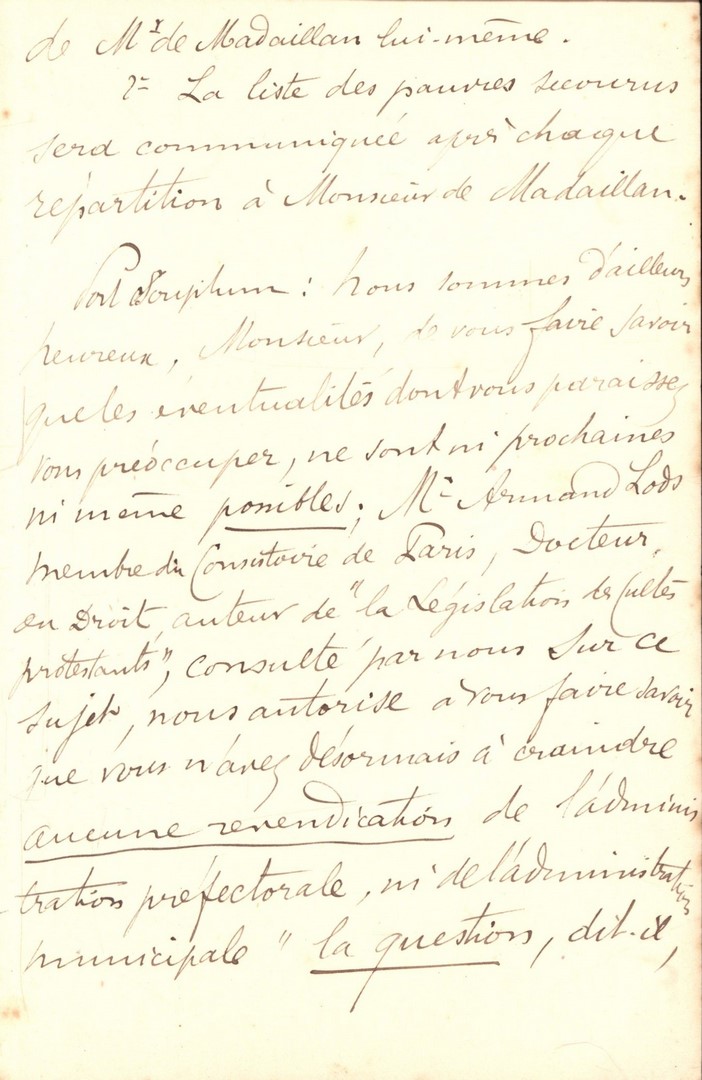 de Mr de Madaillan lui-même.
2° La liste des pauvres secourus
sera communiquée après chaque
répartition à Monsieur de Madaillan.
Post Scriptum : Nous sommes d'ailleurs
heureux, Monsieur, de vous faire savoir
que les éventualités dont vous paraissez
vous préoccuper, ne sont ni prochaines
ni même possibles; Mr Armand Lods
membre du Consistoire de Paris, Docteur,
en Droit, auteur de "la Législation des Cultes
protestants", consulté par nous sur ce
sujet, nous autorise à vous faire savoir
que vous n'avez désormais à craindre
aucune revendication de l'adminis
tration préfectorale, ni de l'administration
municipale " la question, dit-il,